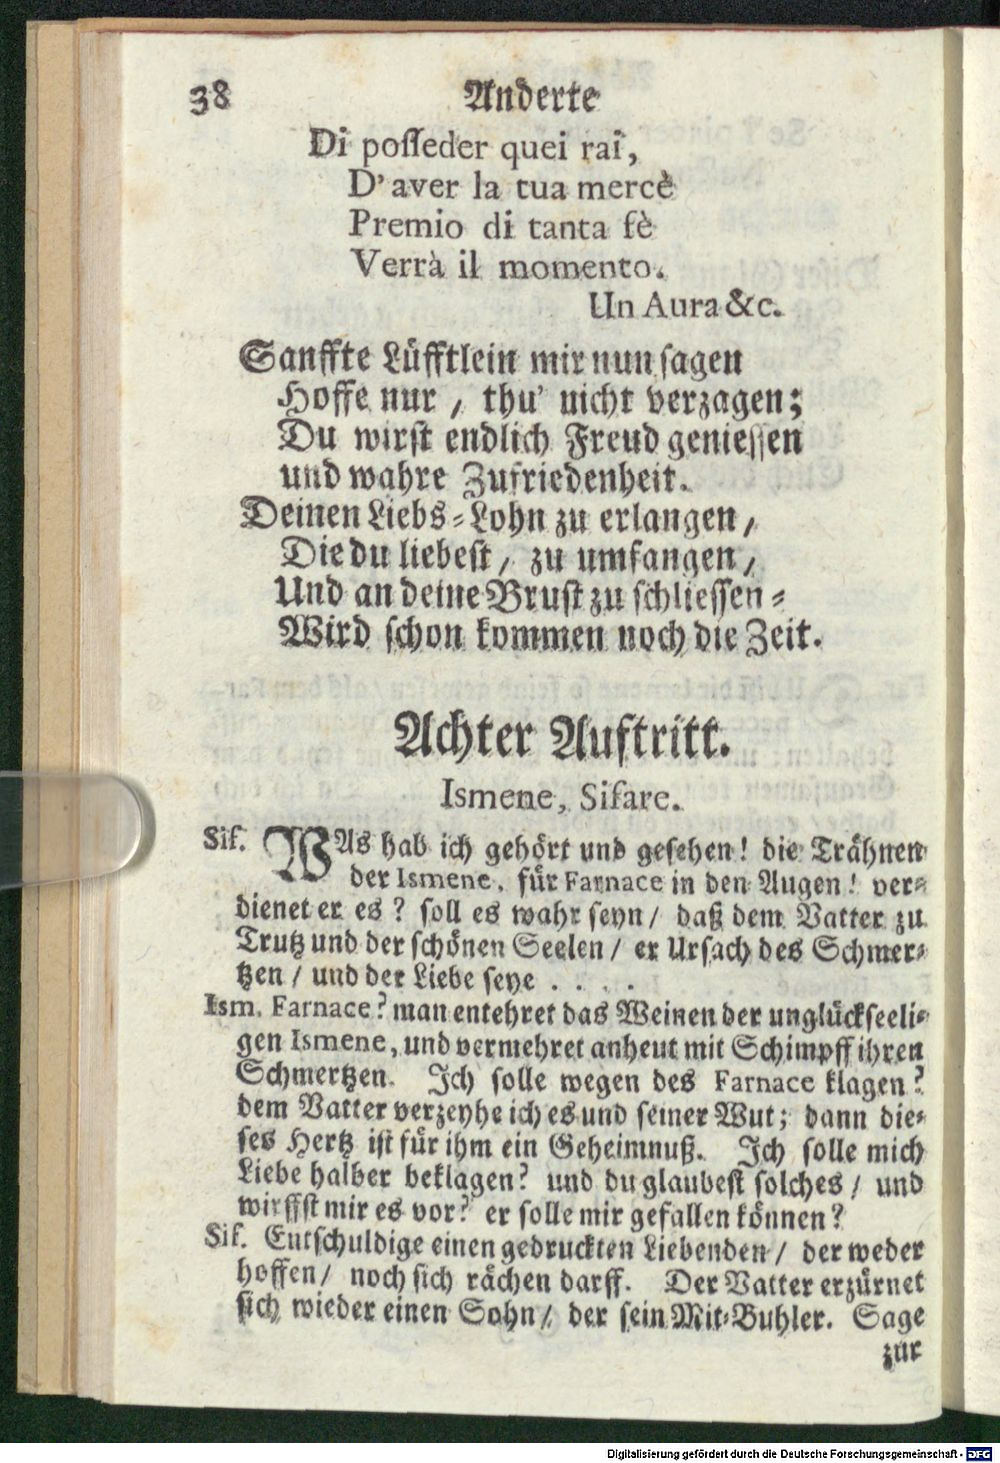 38 Anderte
Di posseder quei rai,
D'aver la tua mercè
Premio di tanta fè
Verrà il momento.
Un Aura &c.
Sanffte Lüfftlein mir nun sagen
Hoffe nur / thu' nicht verzagen;
Du wirst endlich Freud geniessen
und wahre Zufriedenheit.
Deinen Liebs-Lohn zu erlangen /
Die du liebest / zu umfangen /
Und an deine Brust zu schliessen-
Wird schon kommen noch die Zeit.
Achter Auftritt.
Ismene, Sifare.
Sif. WAs hab ich gehört und gesehen! die Trähnen
der Ismene, für Farnace in den Augen! ver-
dienet er es? soll es wahr seyn / daß dem Vatter zu
Trutz und der schönen Seelen / er Ursach des Schmer-
tzen / und der Liebe seye . . . .
Ism. Farnace? man entehret das Weinen der unglückseeli-
gen Ismene, und vermehret anheut mit Schimpff ihren
Schmertzen. Ich solle wegen des Farnace klagen?
dem Vatter verzeyhe ich es und seiner Wut; dann die-
ses Hertz ist für ihm ein Geheimnuß. Ich solle mich
Liebe halber beklagen? und du glaubest solches / und
wirffst mir es vor? er solle mir gefallen können?
Sif. Entschuldige einen gedruckten Liebenden / der weder
hoffen / noch sich rächen darff. Der Vatter erzürnet
sich wieder einen Sohn / der sein Mit-Buhler. Sage
zur
Digitalisierung gefördert durch die Deutsche Forschungsgemeinschaft - DFG